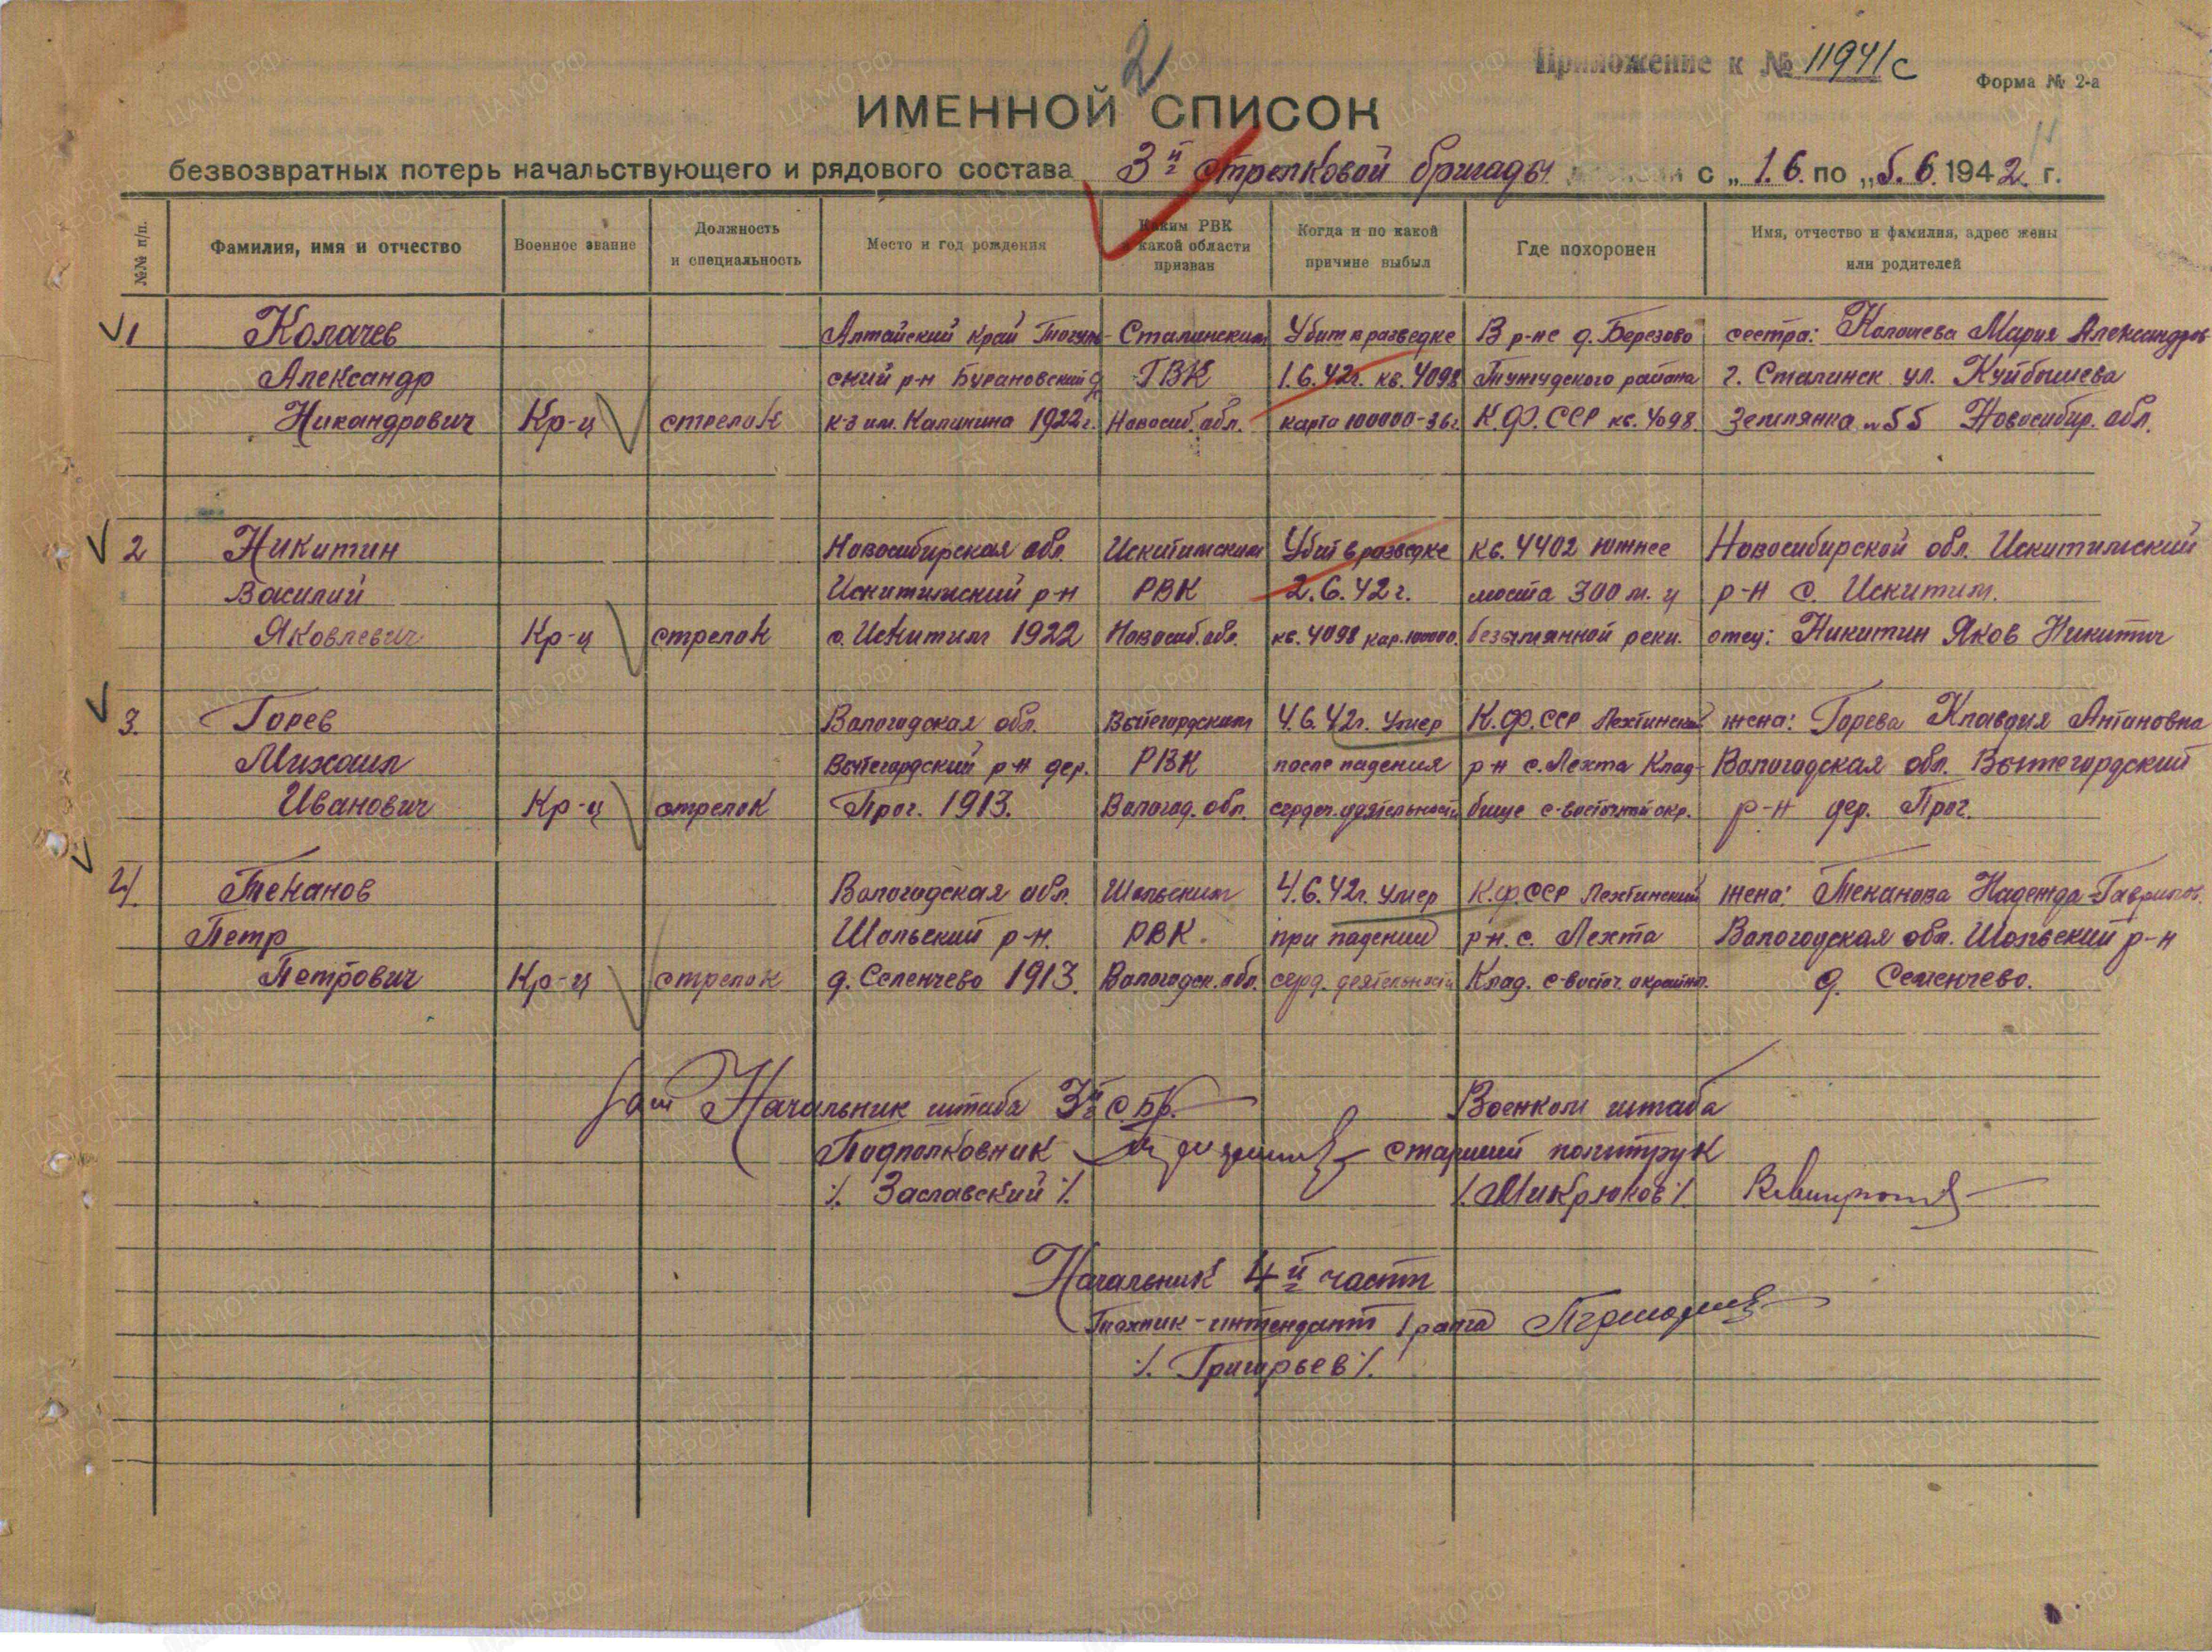 2
Приложение к № 11941с
Форма № 2-а
ИМЕННОЙ СПИСОК
безвозвратных потерь начальствующего и рядового состава 3й стрелковой бригады с „1.6. по „5.6. 1942 г.
№№ п/п.
Фамилия, имя и отчество
Военное звание
Должность
и специальность
Место и год рождения
Каким РВК
и какой области
призван
Когда и по какой
причине выбыл
Где похоронен
Имя, отчество и фамилия, адрес жены
или родителей
1 Колачев Алтайский край Тогуль- Сталинским Убит в разведке В р-не д. Березово сестра: Мария Александров
Александр ский р-н Бурановский ГВК 1.6.42г. кв. 4098 Тунгудского района г. Сталинск ул. Куйбышева
Никандрович Кр-ц стрелок к-з им. Калинина 1922г. Новосиб. обл. карта 100000-36г К.Ф.ССР кв. 4098. Землянка №55 Новосибир. обл.
2 Никитин Новосибирская обл. Искитимским Убит в разведке кв. 4402 южнее Новосибирской обл. Искитимский
Василий Искитимский р-н РВК 2.6.42г. моста 300 м. у р-н с. Искитим.
Яковлевич Кр-ц стрелок с. Искитим 1922 Новосиб. обл. кв. 4098 кар. 100000. безымянной реки. отец: Никитин Яков Никитич
3. Горев Вологодская обл. Вытегордским 4.6.42г. умер К.Ф.ССР Лехтинский жена: Горева Клавдия Антановна
Михаил Вытегордский р-н дер. РВК после падения р-н с. Лехта Клад- Вологодская обл. Вытегордский
Иванович Кр-ц стрелок Прог. 1913. Вологод. обл. сердеч. деятельности бище с-восточной окр. р-н дер. Прог.
4. Теканов Вологодская обл. Шольским 4.6.42г. умер К.Ф.ССР Лехтинский жена: Теканова Надежда Гаврилов.
Петр Шольский р-н. РВК. при падении р-н. с. Лехта Вологодская обл. Шольский р-н
Петрович Кр-ц стрелок д. Селенчево 1913. Вологодск. обл. серд. деятельности Клад. с-восточ. окраина. д. Семенчево.
Зам Начальник штаба 3й с бр. Военком штаба
Подполковник старший политрук
/. Заславский /. /. Микрюков /.
Начальник 4й части
Техник-интендант 1 ранга
/. Григорьев /.
ЦА МО РФ
ПАМЯТЬ НАРОДА